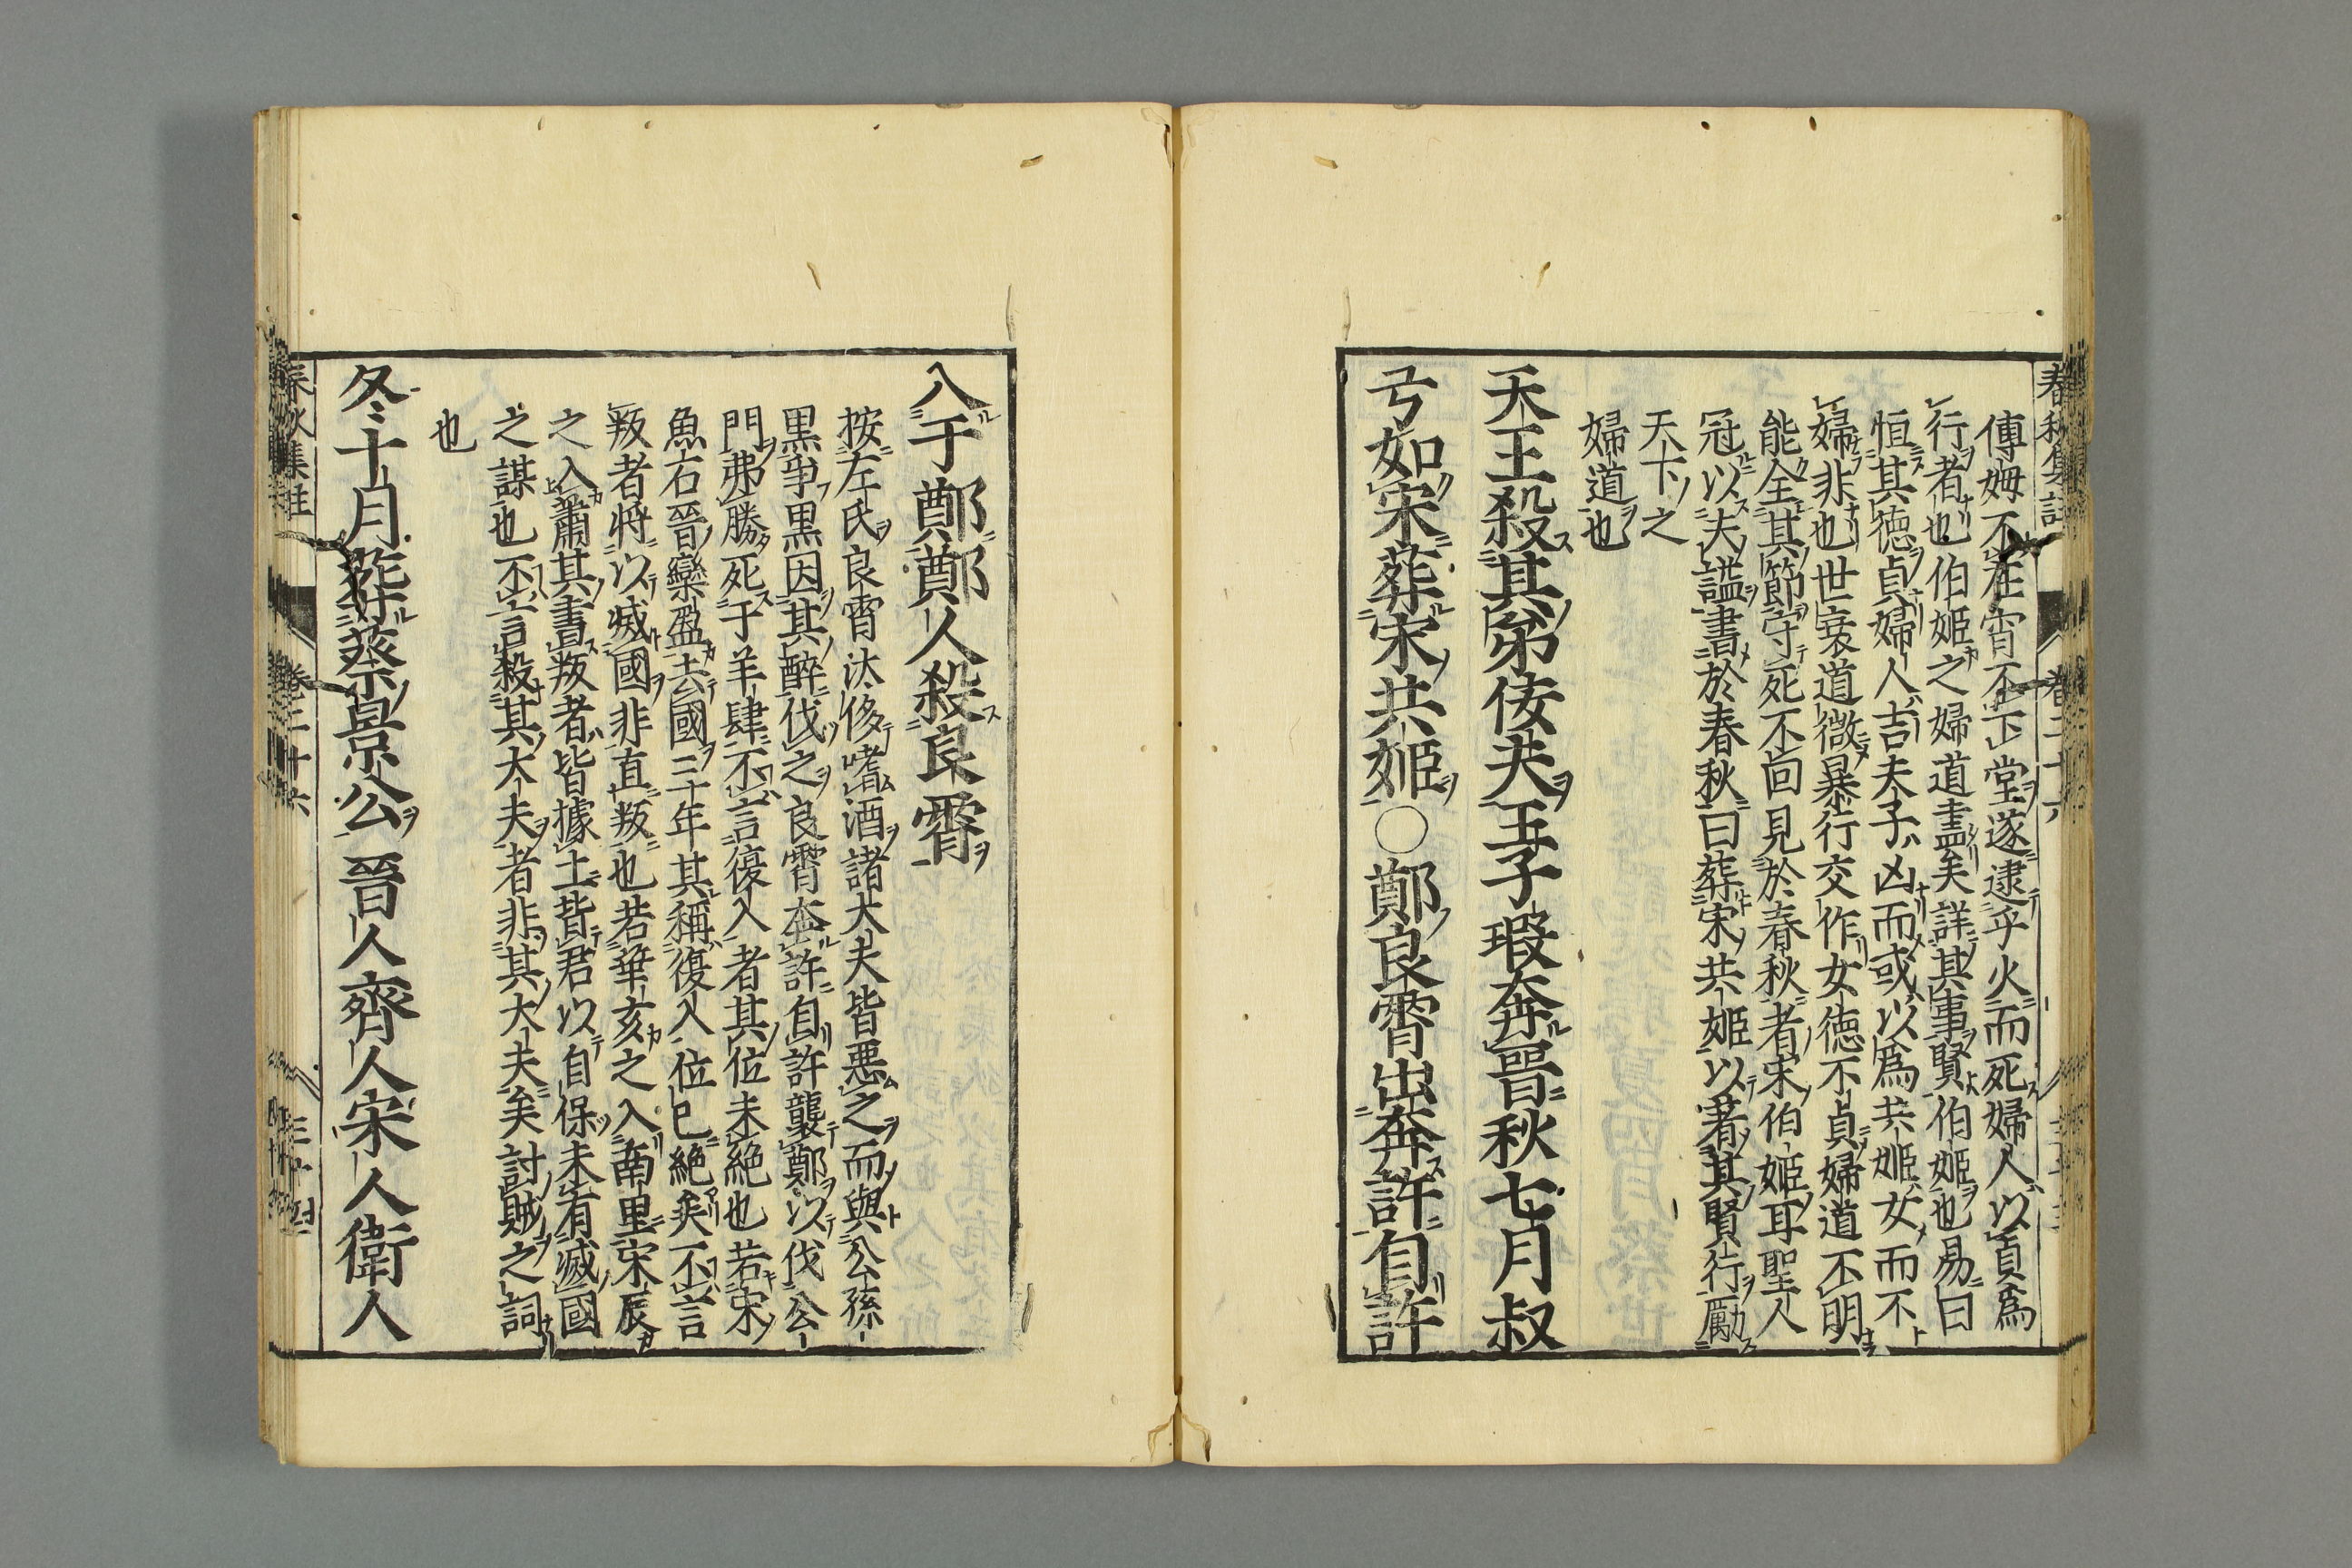 傳姆不在宵不下堂遂逮乎火而死婦人以貞爲
行者也伯姬之婦道盡矣詳其事賢伯姬也易曰
恒其徳貞婦人吉夫子凶而或以爲共姬女而不
婦非也世衰道微暴行交作女徳不貞婦道不明
能全其節守死不回見於春秋者宋伯姬耳聖人
冠以夫謚書於春秋曰葬宋共姬以著其賢行勵
天下之
婦道也
天王殺其弟佞夫王子瑕奔晉秋七月叔
弓如宋葬宋共姬〇鄭良霄出奔許自許
入于鄭鄭人殺良霄
按左氏良霄汰侈嗜酒諸大夫皆惡之而與公孫
黒爭黒因其醉伐之良霄奔許自許襲鄭以伐公
門弗勝死于羊肆不言復入者其位未絶也若宋
魚石晉欒盈去國三年其稱復入位已絶矣不言
叛者將以滅國非直叛也若華亥之入南里宋辰
之入蕭其書叛者皆據土背君以自保未有滅國
之謀也不言殺其大夫者非其大夫矣討賊之詞
也
冬十月葬蔡景公晉人齊人宋人衛人
春秋集註 卷二十六